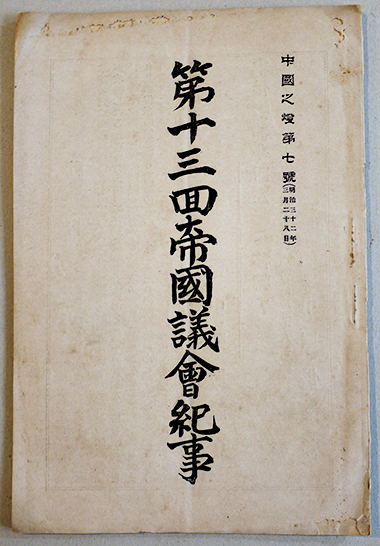 中國之燈第七號(明治三十二年三月二十八日)
第十三囬帝國議會紀事